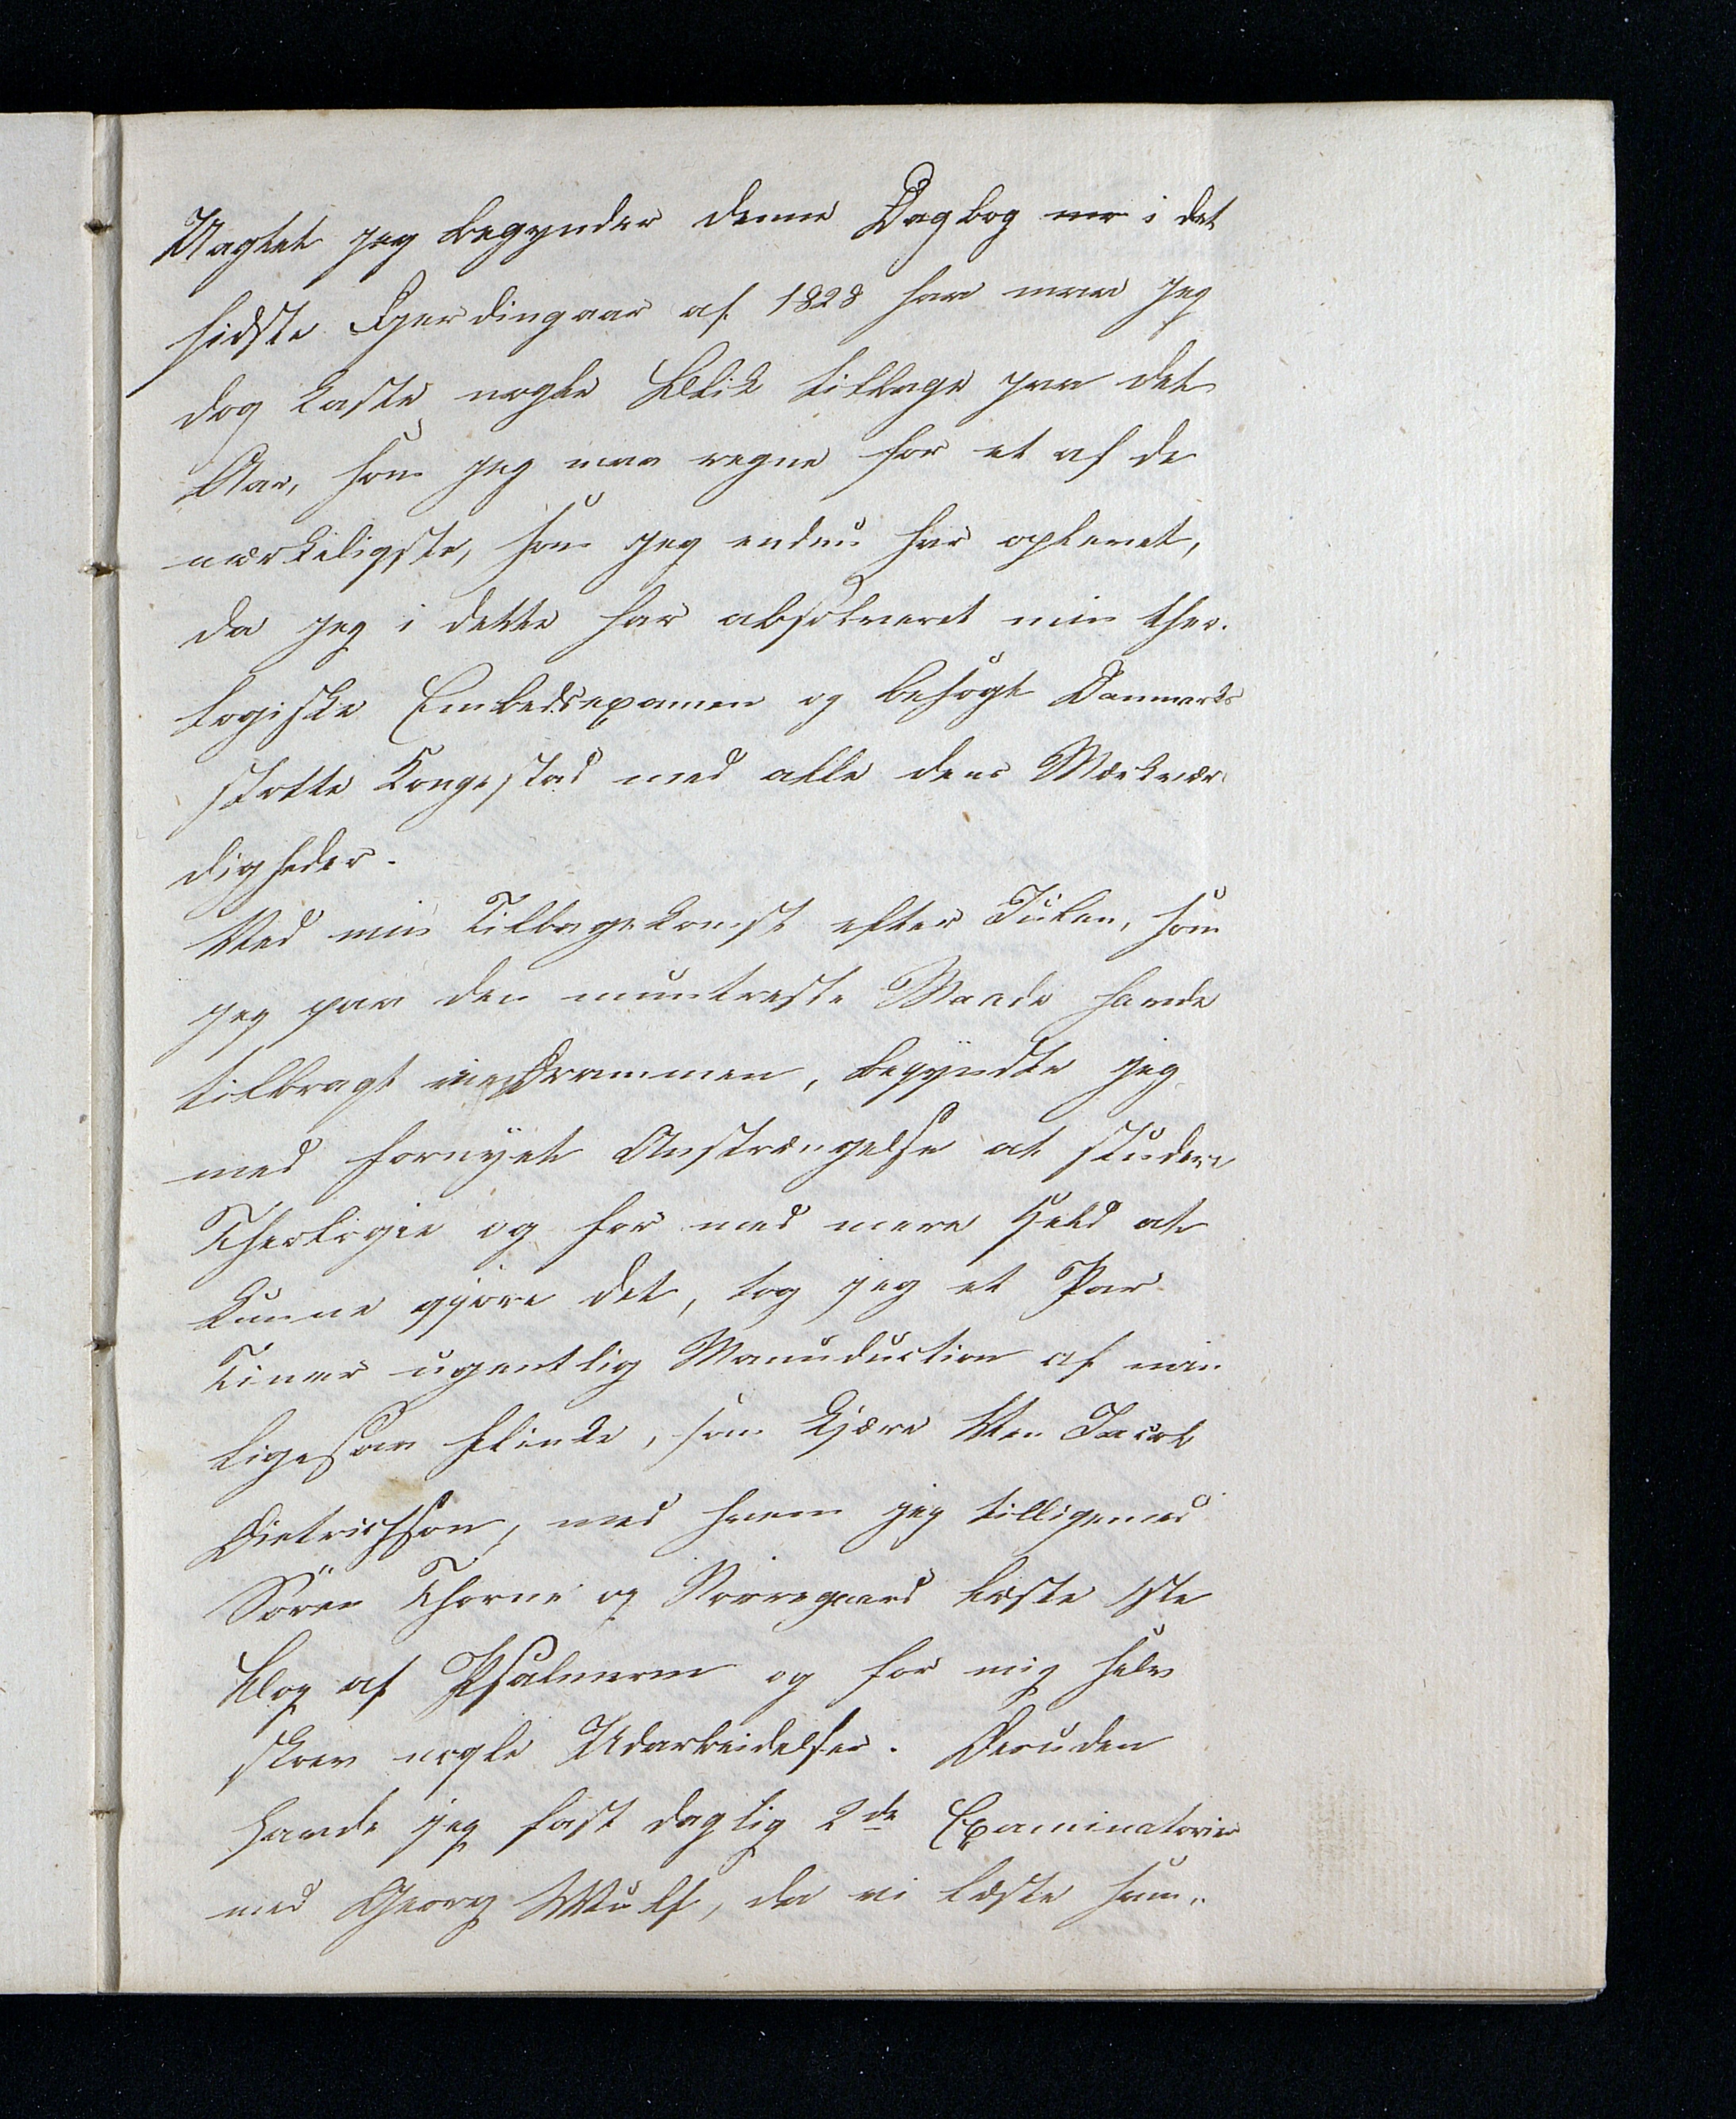 Uagtet jeg begynder denne Dagbog i det
sidste Fjerdingaar af 1828 saa maa jeg
dog kaste nogle Blik tilbage paa det
Aar, som jeg maa regne for et af de
mærkeligste, som jeg endnu har oplevet,
da jeg i dette har absolveret min theo-
logiske Embedsexamen og besøgt Danmarks
stolte Kongestad med alle dens Mærkvær-
digheder.
Ved min Tilbagekomst efter Julen, som
jeg paa den muntreste Maade havde
tilbragt Drammen, begyndte jeg
med fornyet Anstrængelse at studere
Theologie og for med mere Held at
kunne gjøre det, tog jeg et Par
Timer ugentlig Manuduction af min
ligesaa flinke, som kjære Ven Jacob
Dietrichson, med hvem jeg tilligemed
Sören Thorne og Norregaard læste 1ste
Bog af Psalmerne og for mig selv
skrev nogle Udarbeidelser. Desuden
havde jeg fast daglig 2de Examinatorier
med Georg Wulf, da vi læste sam-